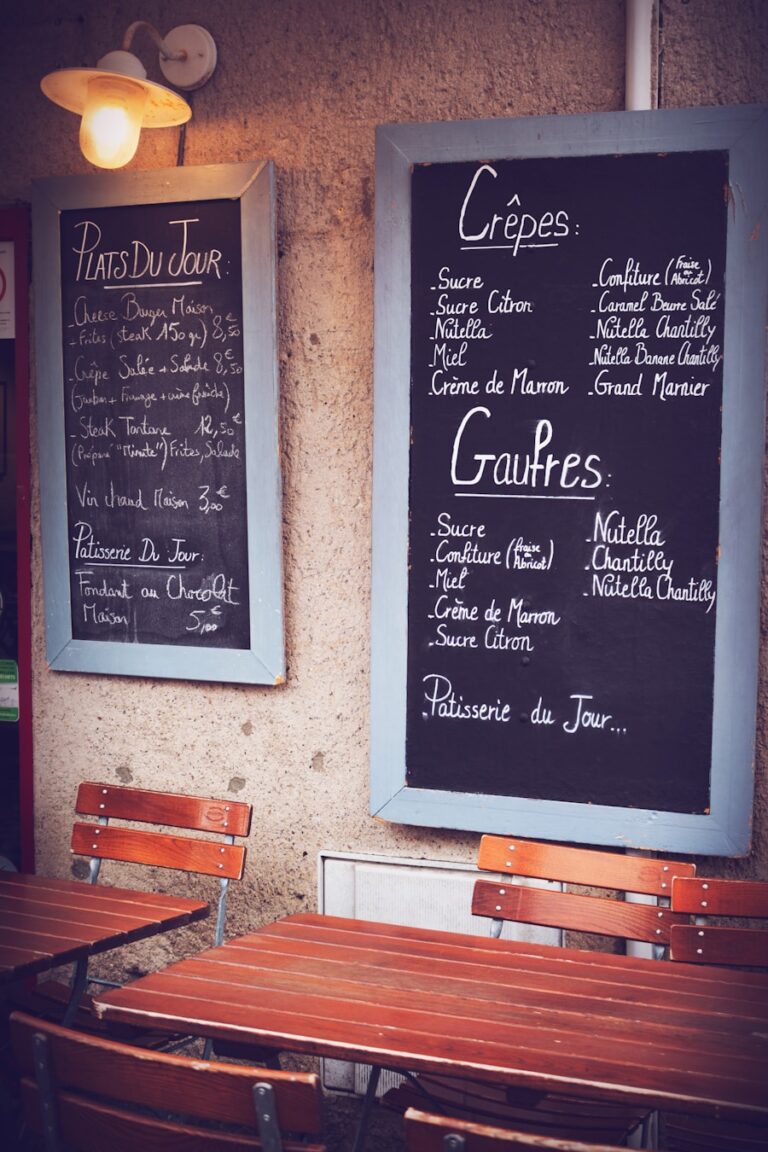 Plats Du Jour:
-Cheese Burger Maison
+ Frites (steak 150 gr) 8,50€
-Crêpe Salée + Salade 8,50€
(Jambon + Fromage + crème fraîche)
-Steak Tartare 12,50€
(Préparé "Minute") Frites, Salade
Vin chaud Maison 3,00€
Patisserie Du Jour:
Fondant au Chocolat
Maison 5,00€
Crêpes:
-Sucre
-Sucre Citron
-Nutella
-Miel
-Crème de Marron
-Confiture (Fraise ou Abricot)
-Caramel Beurre Salé
-Nutella Chantilly
-Nutella Banane Chantilly
-Grand Marnier
Gaufres:
-Sucre
-Confiture (fraise ou Abricot)
-Miel
-Crème de Marron
-Sucre Citron
-Nutella
-Chantilly
-Nutella Chantilly
Patisserie du Jour...